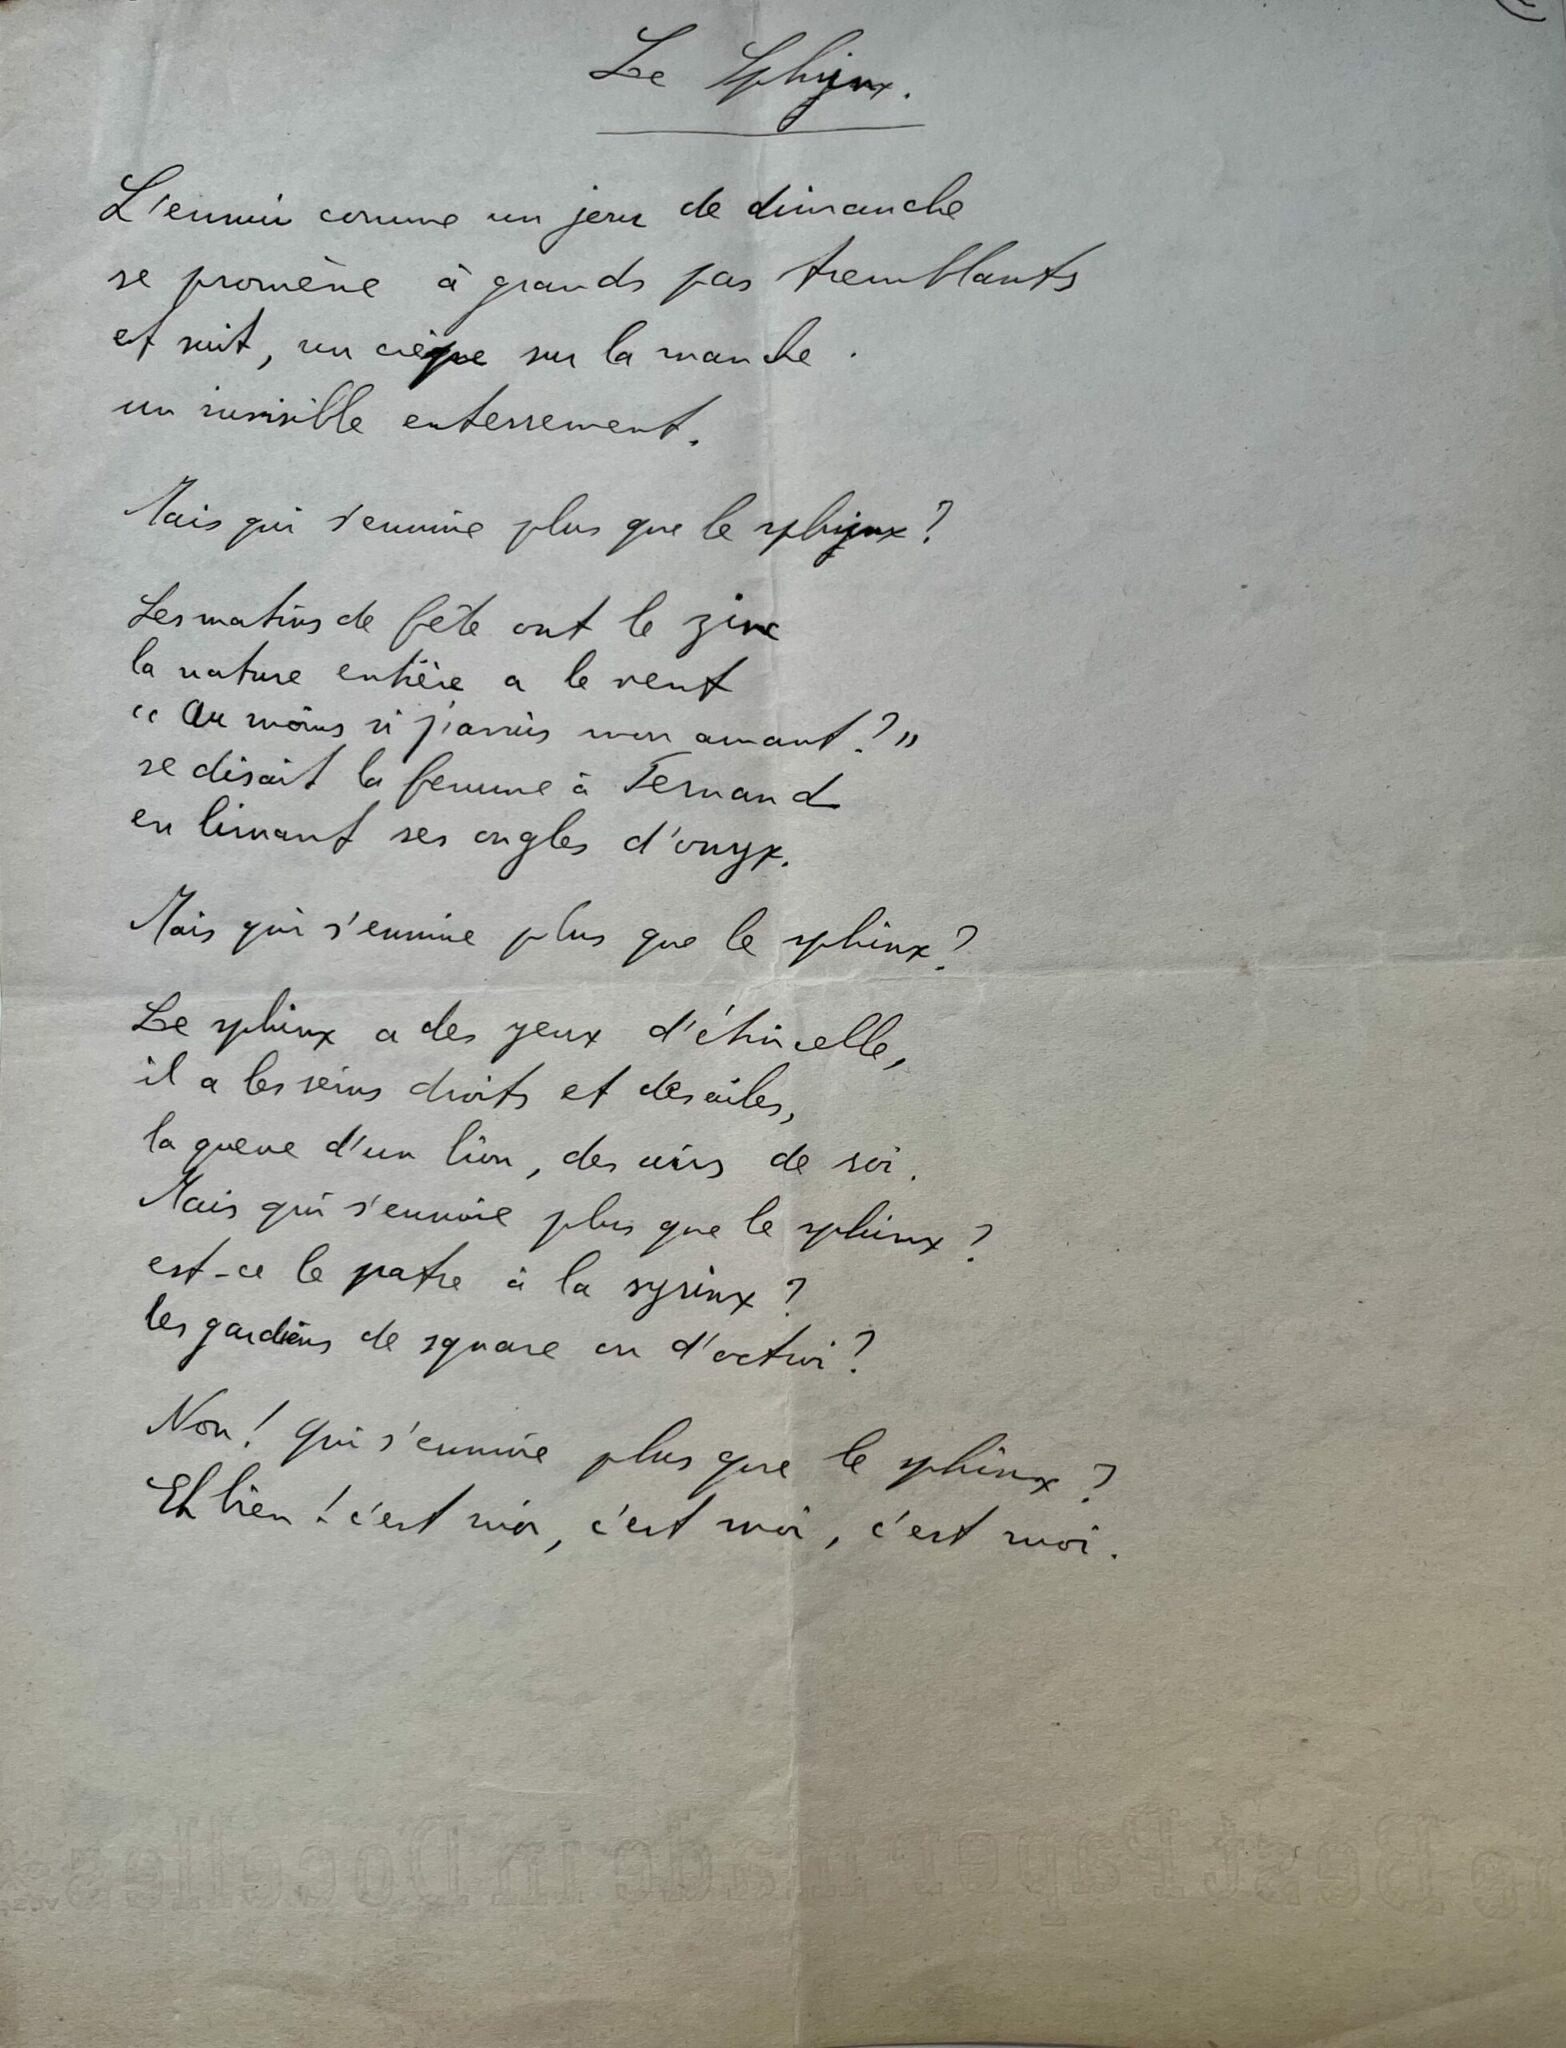 Le Sphinx.
L'ennui comme un jour de dimanche
se promène à grands pas tremblants
et suit, un crêpe sur la manche.
un invisible enterrement.
Mais qui s'ennuie plus que le sphinx?
Les matins de fête ont le zinc
la nature entière a le vent
"Au moins si j'avais mon amant?"
se disait la femme à Fernand
en limant ses ongles d'onyx.
Mais qui s'ennuie plus que le sphinx?
Le sphinx a des yeux d'étincelle,
il a les seins droits et des ailes,
la queue d'un lion, des airs de soi.
Mais qui s'ennuie plus que le sphinx?
est-ce le patre à la syrinx?
les gardiens de square ou d'octroi?
Non! qui s'ennuie plus que le sphinx?
Eh bien! c'est moi, c'est moi, c'est moi.
Best Paper made in Docelles